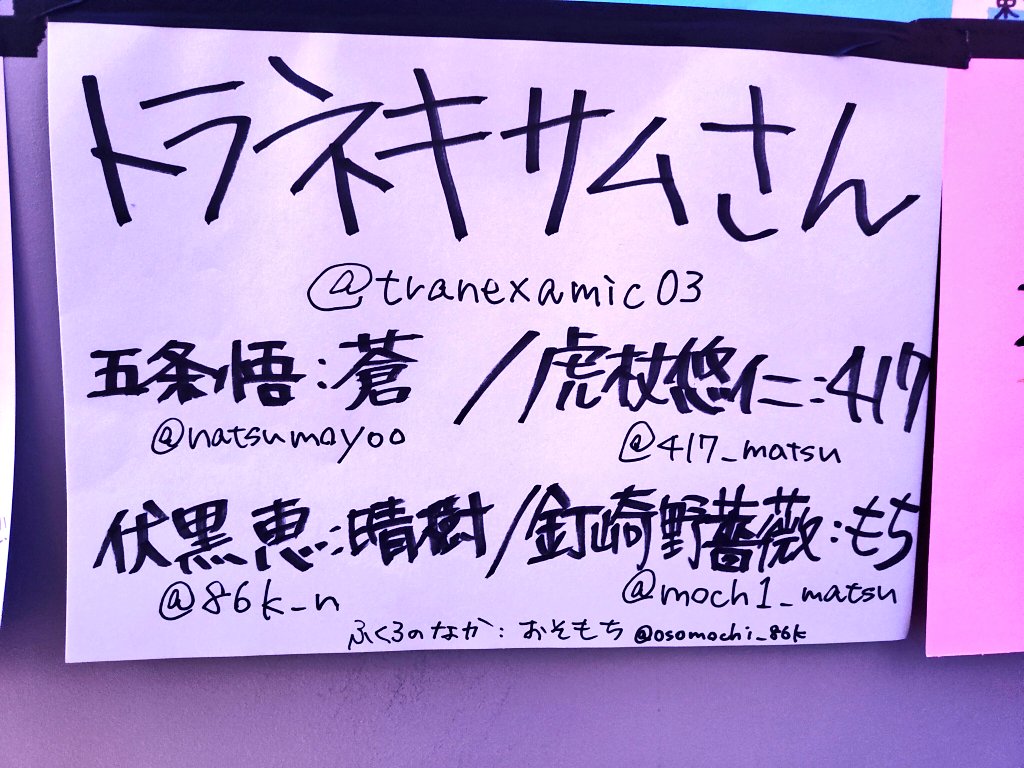 トラネキサムさん
@tranexamic03
五条悟:蒼 /虎杖悠仁:417
@natsumayoo @417_matsu
伏黒恵:晴樹/釘崎野薔薇:もち
@86k_n @moch1_matsu
ふくろのなか:おそもち @osomochi_86k
東